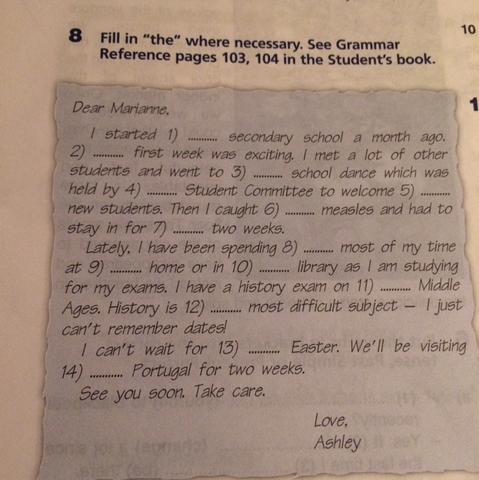 8 Fill in "the" where necessary. See Grammar
Reference pages 103, 104 in the Student's book.
10
1
Dear Marianne,
I started 1) .......... secondary school a month ago.
2) .......... first week was exciting. I met a lot of other
students and went to 3) .......... school dance which was
held by 4) .......... Student Committee to welcome 5) ..........
new students. Then I caught 6) .......... measles and had to
stay in for 7) .......... two weeks.
Lately, I have been spending 8) .......... most of my time
at 9) .......... home or in 10) .......... library as I am studying
for my exams. I have a history exam on 11) .......... Middle
Ages. History is 12) .......... most difficult subject – I just
can't remember dates!
I can't wait for 13) .......... Easter. We'll be visiting
14) .......... Portugal for two weeks.
See you soon. Take care.
Love,
Ashley